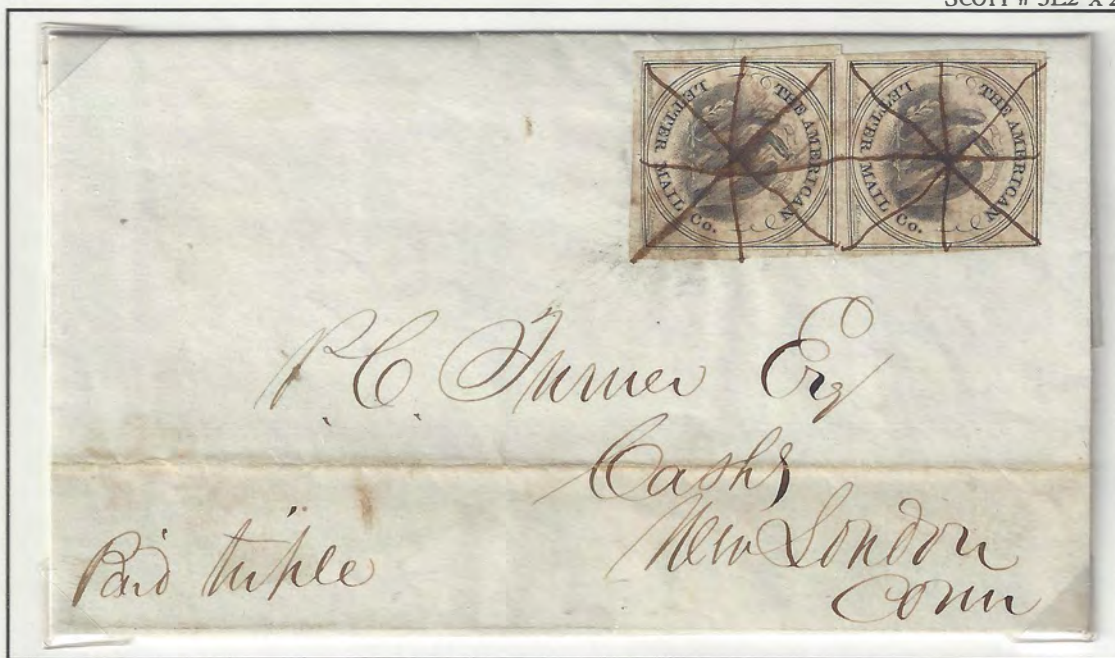 SCOTT # 5L2 X 2
THE AMERICAN LETTER MAIL CO.
THE AMERICAN LETTER MAIL CO.
P. C. Turner Esq
Cashr
New London
Conn
Paid triple